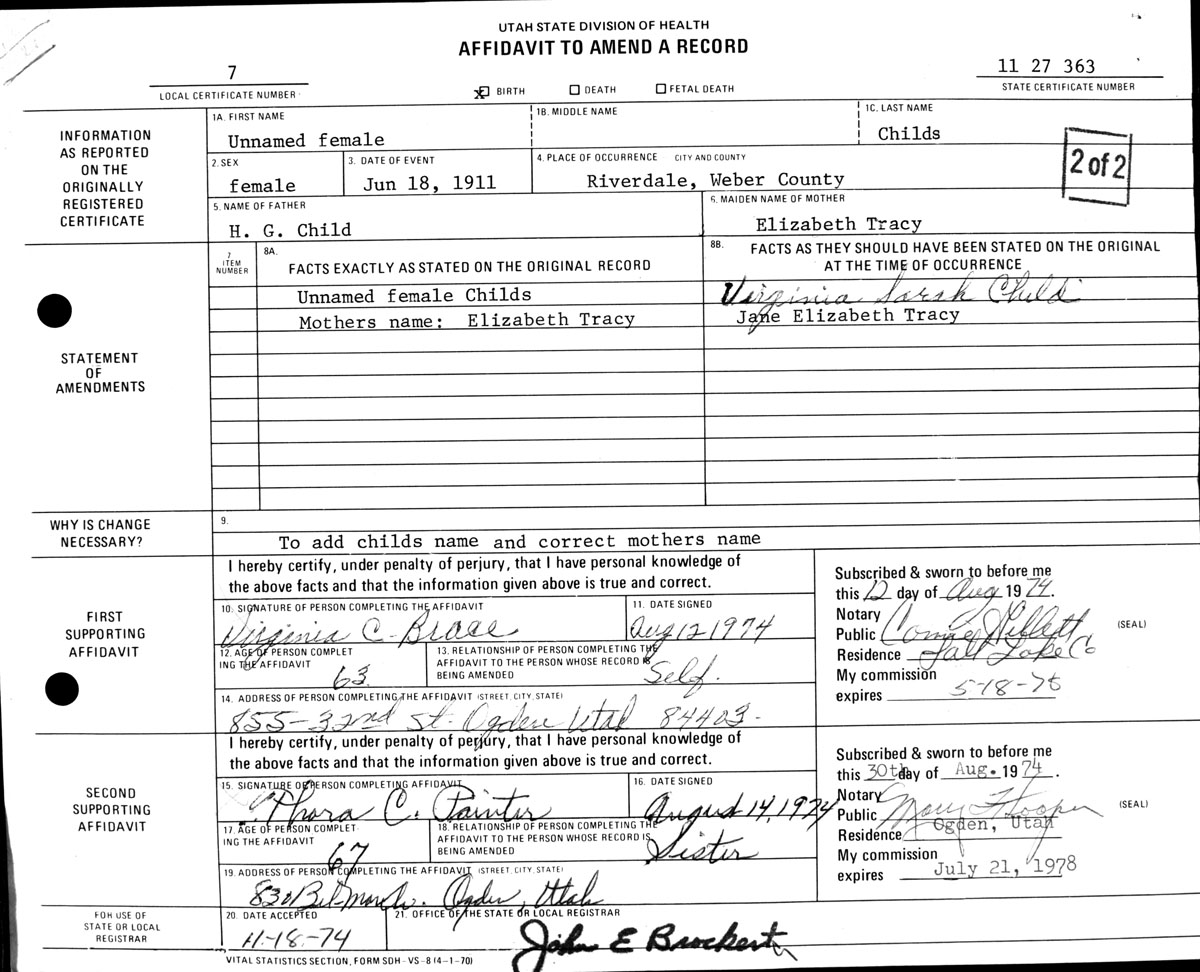 UTAH STATE DIVISION OF HEALTH
AFFIDAVIT TO AMEND A RECORD
7
LOCAL CERTIFICATE NUMBER
X BIRTH DEATH FETAL DEATH
11 27 363
STATE CERTIFICATE NUMBER
INFORMATION AS REPORTED ON THE ORIGINALLY REGISTERED CERTIFICATE
1A. FIRST NAME 1B. MIDDLE NAME 1C. LAST NAME
Unnamed female Childs
2. SEX 3. DATE OF EVENT 4. PLACE OF OCCURRENCE CITY AND COUNTY
female Jun 18, 1911 Riverdale, Weber County
2 of 2
5. NAME OF FATHER 6. MAIDEN NAME OF MOTHER
H. G. Child Elizabeth Tracy
STATEMENT OF AMENDMENTS
7 ITEM NUMBER
8A. FACTS EXACTLY AS STATED ON THE ORIGINAL RECORD
8B. FACTS AS THEY SHOULD HAVE BEEN STATED ON THE ORIGINAL
AT THE TIME OF OCCURRENCE
Unnamed female Childs Virginia Sarah Child
Mothers name: Elizabeth Tracy Jane Elizabeth Tracy
WHY IS CHANGE NECESSARY?
9.
To add childs name and correct mothers name
FIRST SUPPORTING AFFIDAVIT
I hereby certify, under penalty of perjury, that I have personal knowledge of
the above facts and that the information given above is true and correct.
10. SIGNATURE OF PERSON COMPLETING THE AFFIDAVIT 11. DATE SIGNED
Virginia C. Brace Aug 12 1974
12. AGE OF PERSON COMPLETING THE AFFIDAVIT
63
13. RELATIONSHIP OF PERSON COMPLETING THE AFFIDAVIT TO THE PERSON WHOSE RECORD IS BEING AMENDED
Self.
14. ADDRESS OF PERSON COMPLETING THE AFFIDAVIT (STREET, CITY, STATE)
855-32nd St. Ogden Utah 84403-
Subscribed & sworn to before me
this 12 day of Aug 1974.
Notary
Public Connie
(SEAL)
Residence Salt Lake Co
My commission
expires 5-18-
SECOND SUPPORTING AFFIDAVIT
I hereby certify, under penalty of perjury, that I have personal knowledge of
the above facts and that the information given above is true and correct.
15. SIGNATURE OF PERSON COMPLETING AFFIDAVIT 16. DATE SIGNED
Thora C. Painter August 14, 1974
17. AGE OF PERSON COMPLETING THE AFFIDAVIT
67
18. RELATIONSHIP OF PERSON COMPLETING THE AFFIDAVIT TO THE PERSON WHOSE RECORD IS BEING AMENDED
Sister
19. ADDRESS OF PERSON COMPLETING THE AFFIDAVIT (STREET, CITY, STATE)
830 Ogden, Utah
Subscribed & sworn to before me
this 30th day of Aug. 1974.
Notary
Public Hooper
(SEAL)
Residence Ogden, Utah
My commission
expires July 21, 1978
FOR USE OF STATE OR LOCAL REGISTRAR
20. DATE ACCEPTED 21. OFFICE OF THE STATE OR LOCAL REGISTRAR
11-18-74 John E Brockert
VITAL STATISTICS SECTION, FORM SDH-VS-8 (4-1-70)